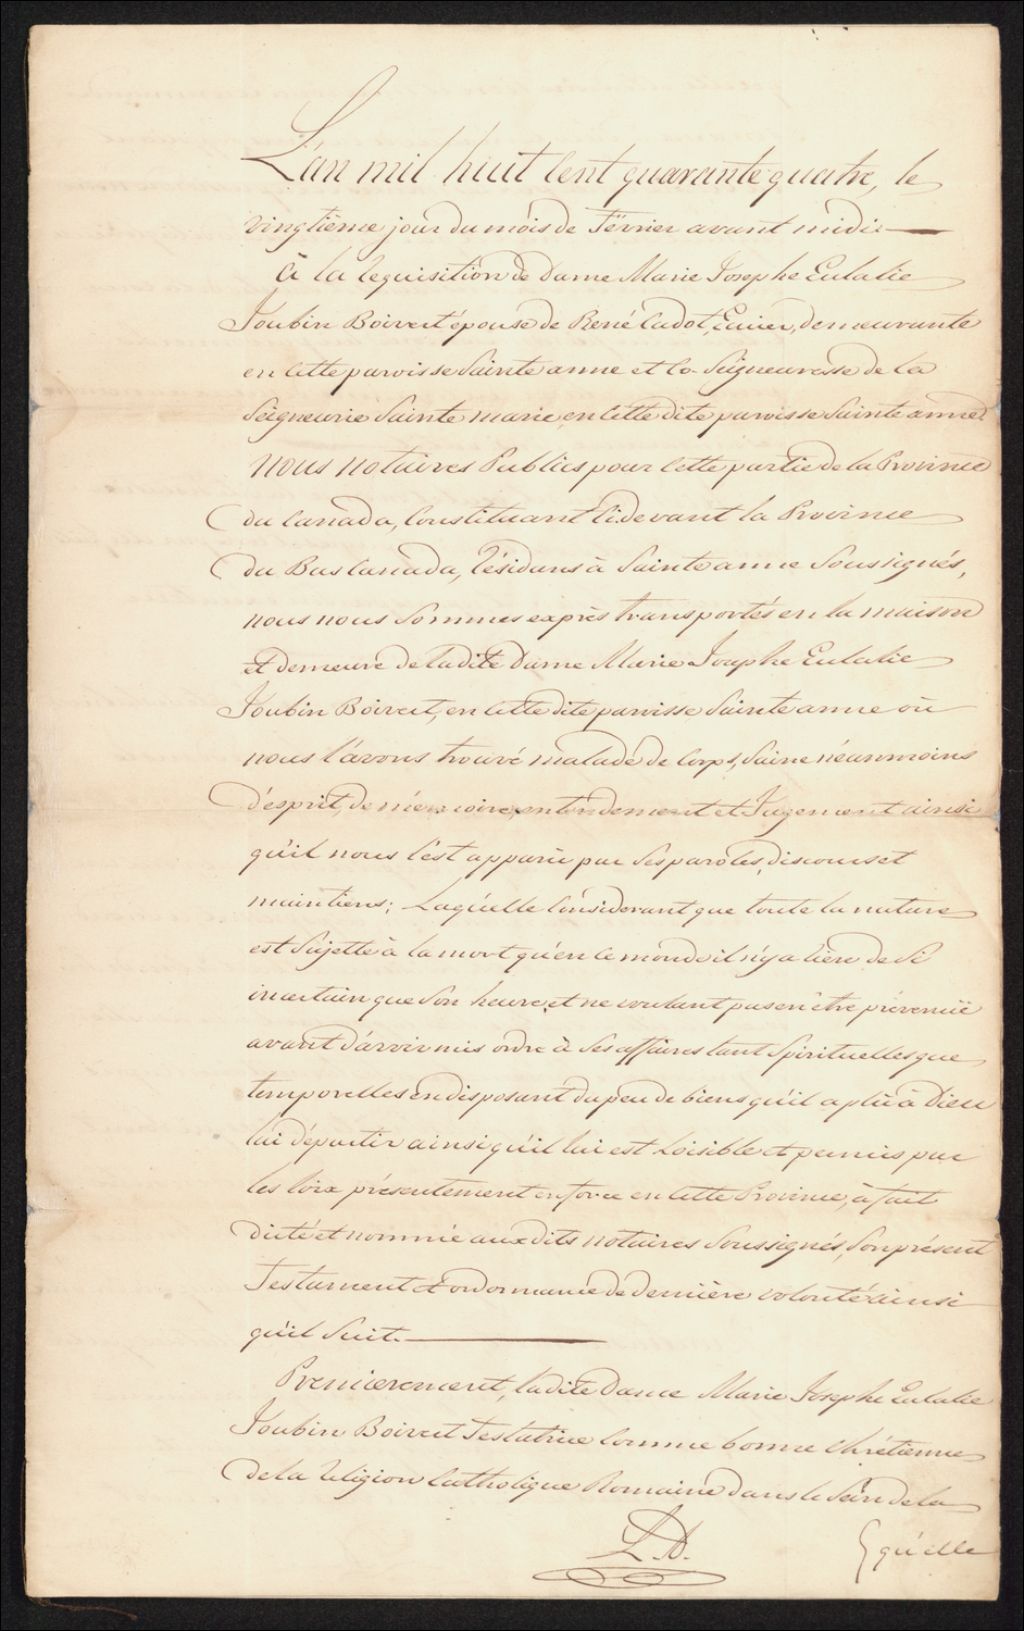 L'an mil huit Cent quarante quatre, le
vingtième jour du mois de Février avant midi
à la Requisition de Dame Marie Josephe Eulalie
Joubin Boivert épouse de René Cadot, Ecuier, demeurante
en Cette paroisse Sainte anne et Co-Seigneuresse de la
Seigneurie Sainte marie en Cette dite paroisse Sainte anne
Nous Notaires Publics pour Cette partie de la Province
du Canada, Constituant Ci devant la Province
du Bas Canada, Résidans à Sainte anne Soussignés,
nous nous Sommes exprès transportés en la maison
et demeure de la dite Dame Marie Josephe Eulalie
Joubin Boivert, en Cette dite paroisse Sainte anne où
nous l'avons trouvé malade de Corps, Saine néanmoins
d'esprit, de mémoire, entendement et Jugement ainsi
qu'il nous C'est apparü par Ses paroles, discours et
maintiens; Laquelle Considerant que toute la nature
est Sujette à la mort qu'en Ce monde il n'y a Rien de Si
incertain que Son heure, et ne voulant pas en être prévenüe
avant d'avoir mis ordre à Ses affaires tant Spirituelles que
temporelles en disposant du peu de biens qu'il a plû à Dieu
lui départir ainsi qu'il lui est Loisible et permis par
les loix présentement en force en Cette Province, à fait
dicté et nommé aux dits notaires Soussignés, Son présent
Testament et ordonnance de dernière volonté ainsi
qu'il Suit.
Premierement, la dite Dame Marie Josephe Eulalie
Joubin Boivert Testatrice Comme bonne Chrétienne
de la Religion Catholique Romaine dans le Sein de la
qu'elle